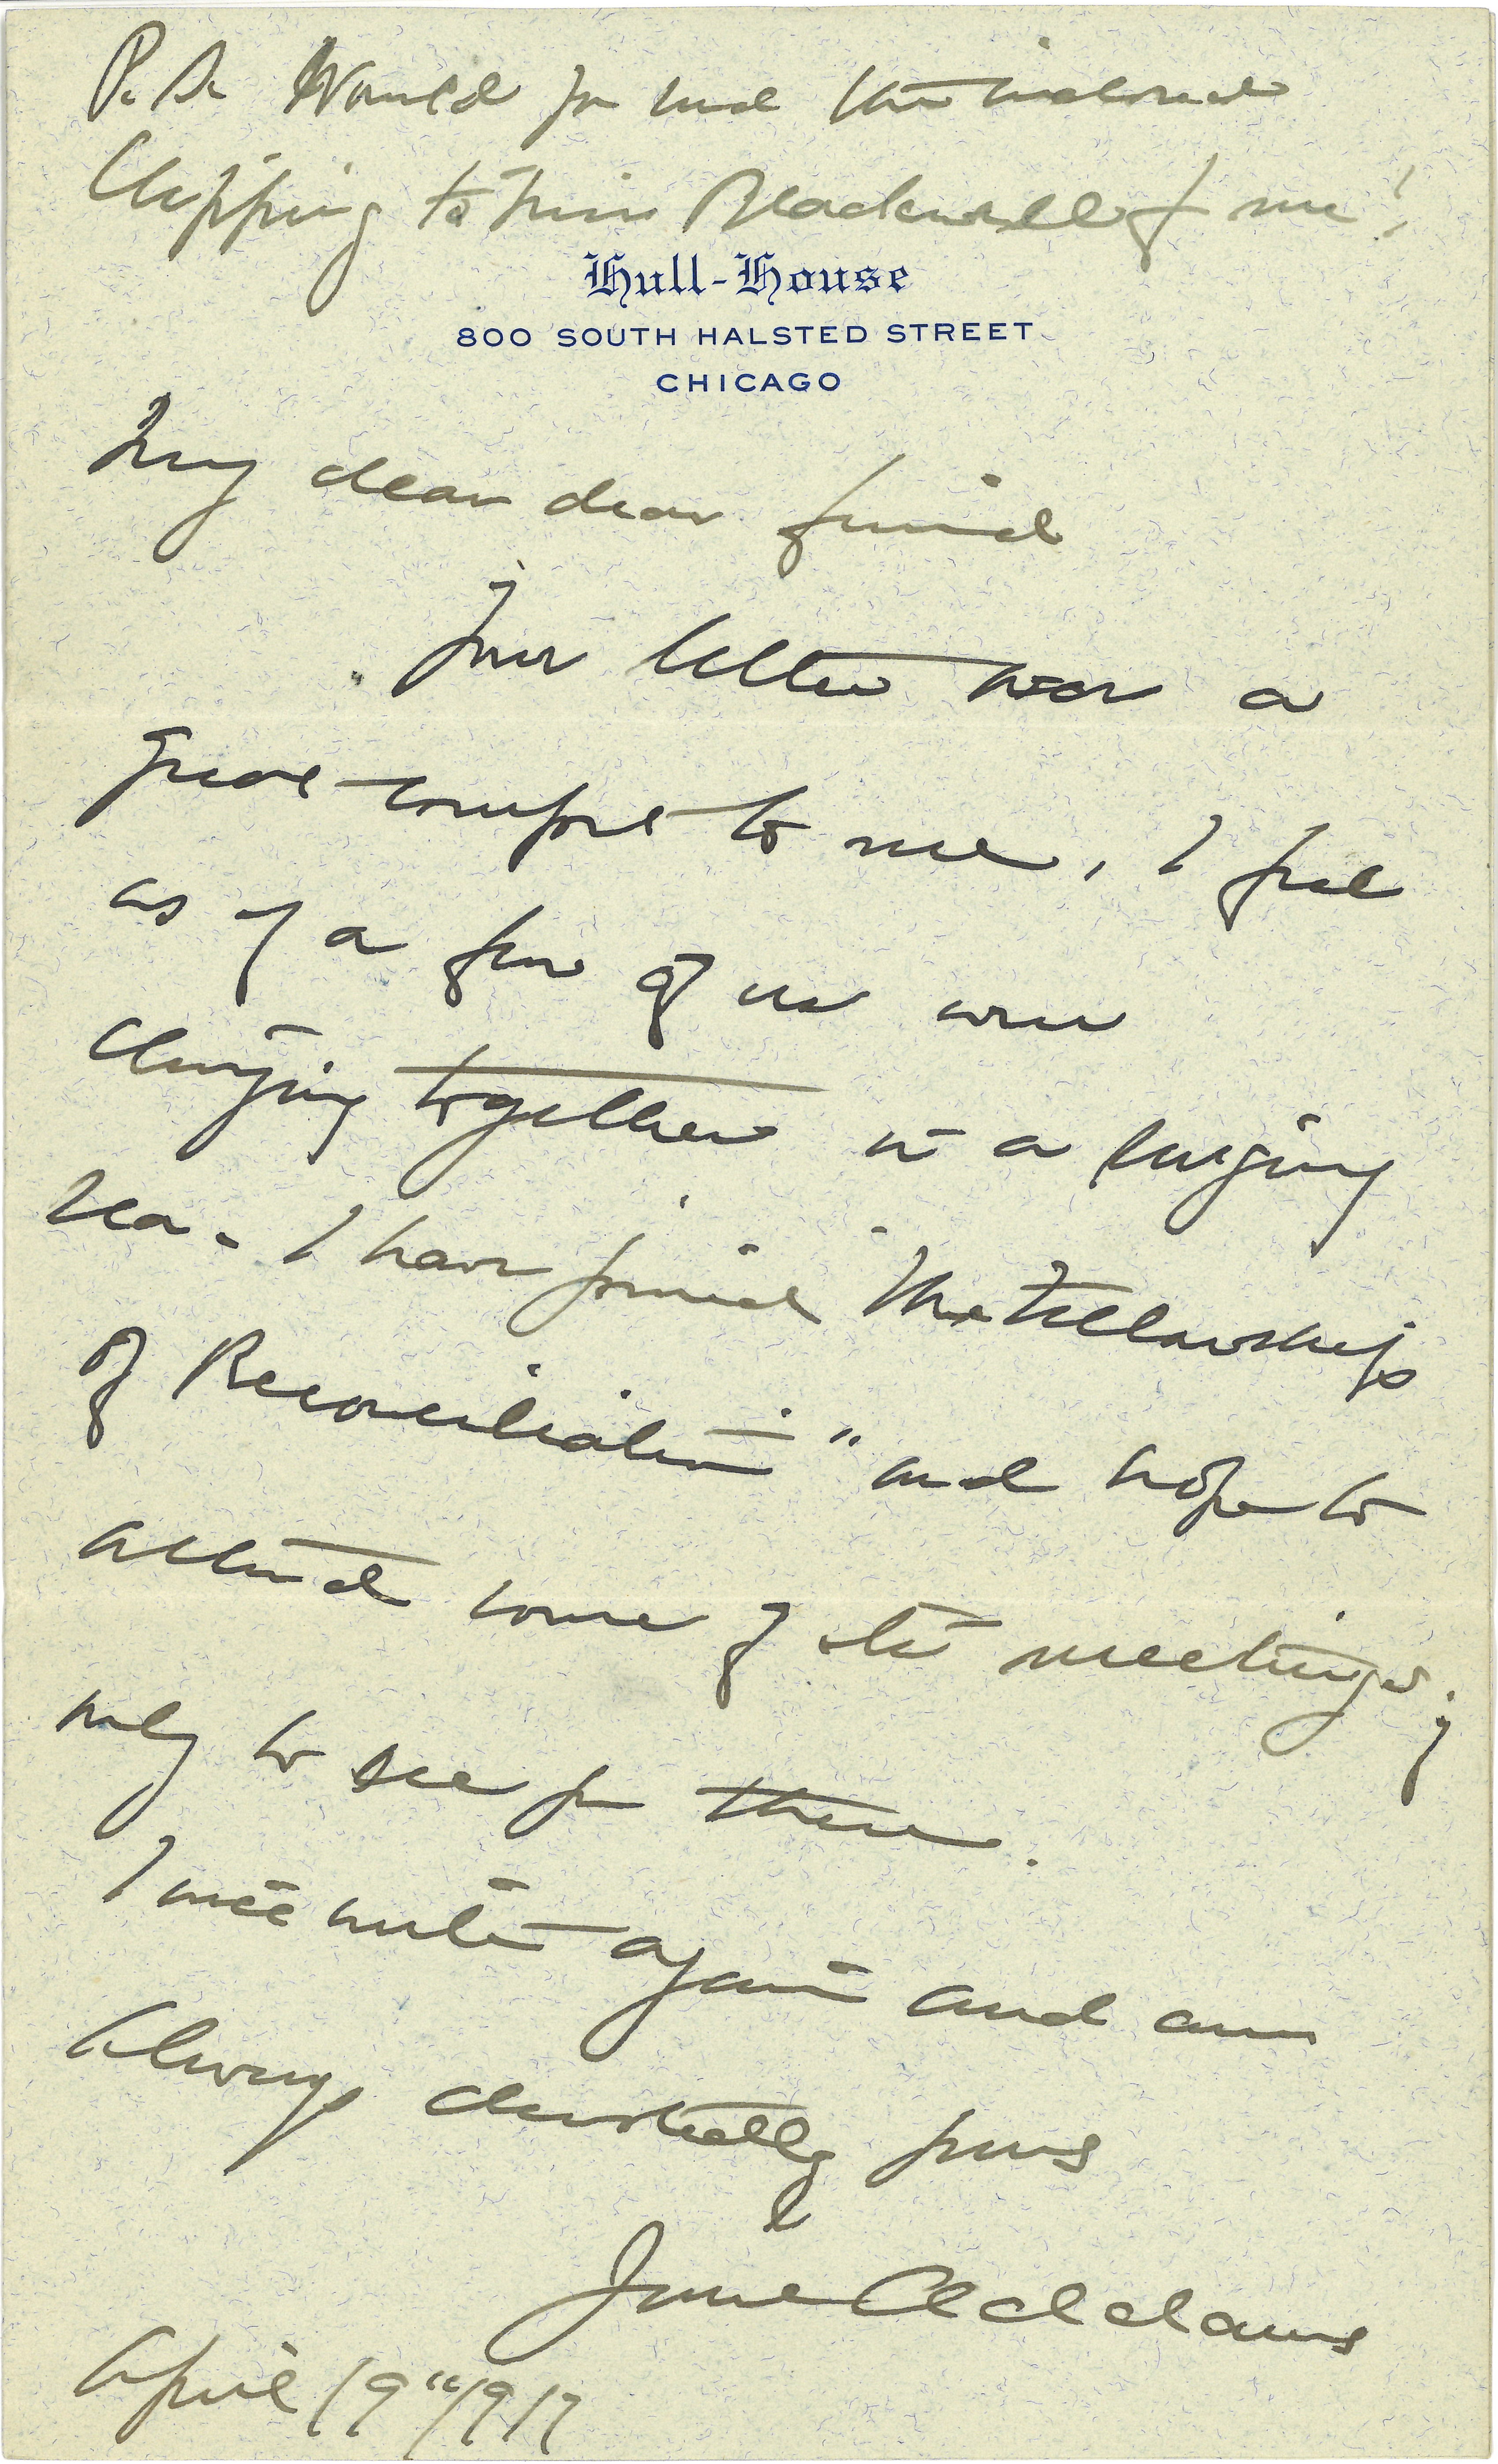 P.S. Would you send the enclosed
clipping to Miss Blackwell for me!
Hull-House
800 SOUTH HALSTED STREET
CHICAGO
My dear dear friend
Your letter was a
great comfort to me, I feel
as if a few of us were
clinging together in a surging
sea. I have joined "The Fellowship
of Reconciliation" and hope to
attend some of its meetings,
only to see you there.
I will write again and am
always devotedly yours
Jane Addams
April 19" 1917